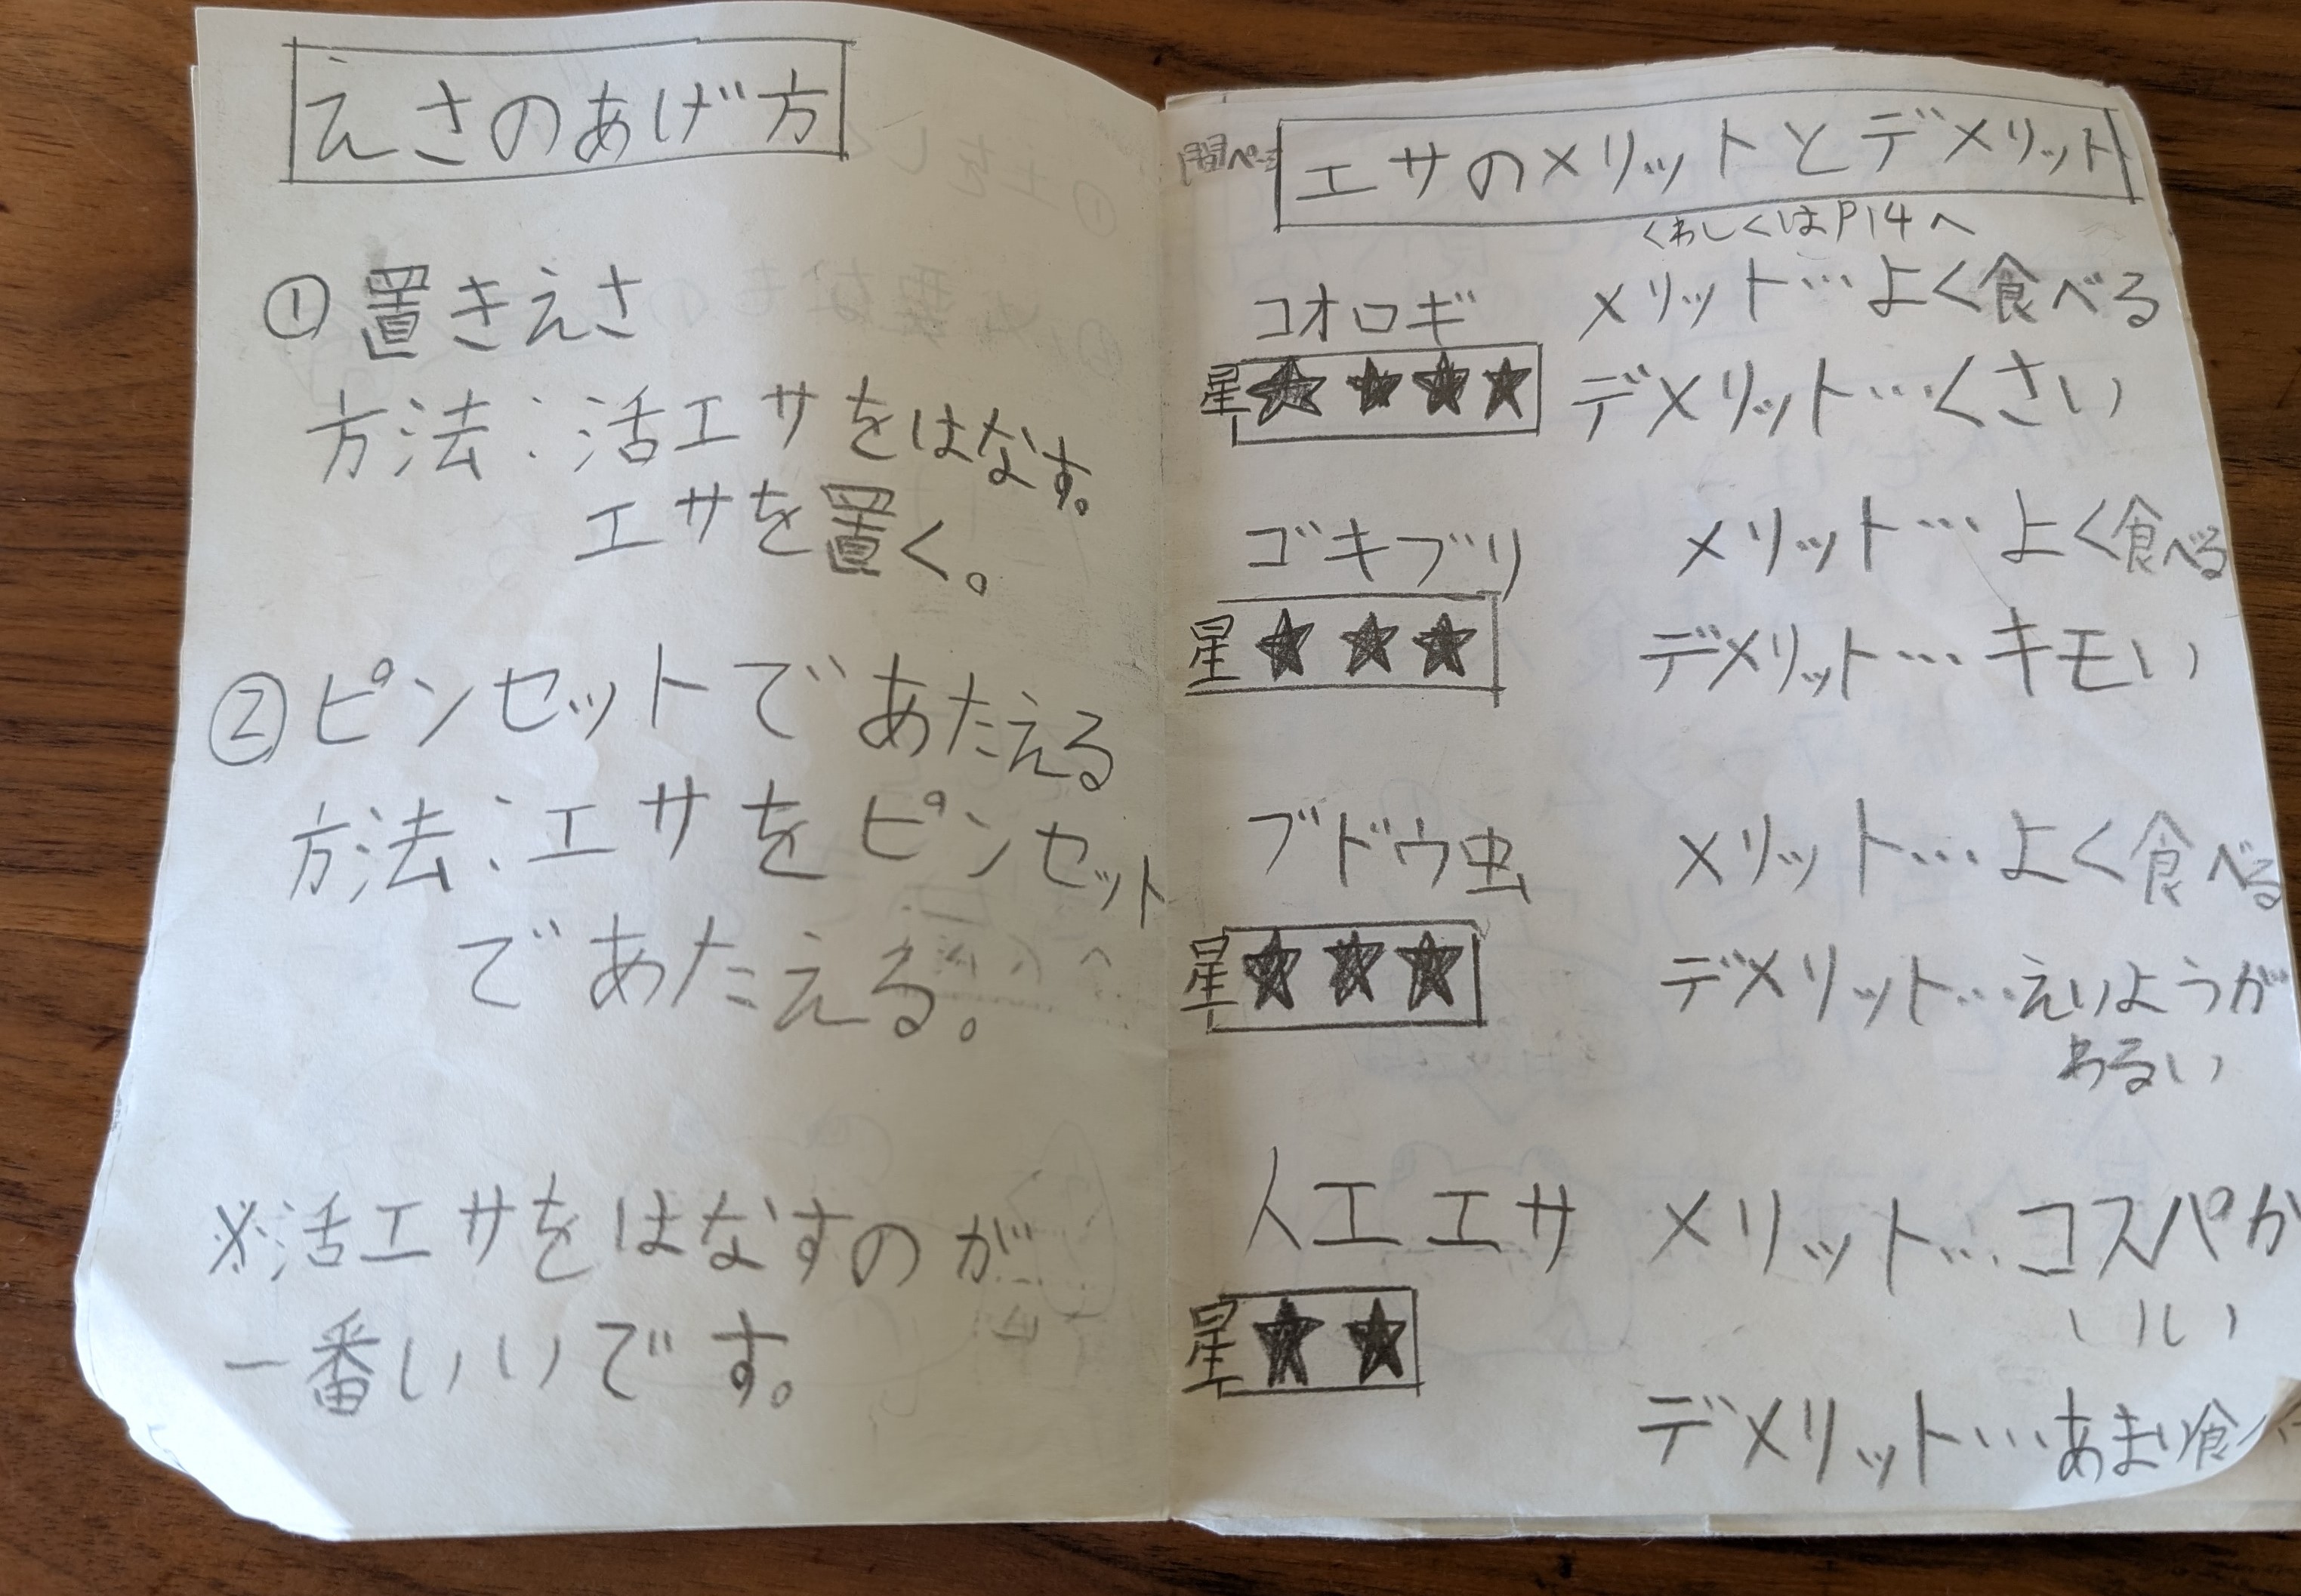 えさのあげ方
①置きえさ
方法:活エサをはなす。
エサを置く。
②ピンセットであたえる
方法:エサをピンセット
であたえる。
※活エサをはなすのが
一番いいです。
エサのメリットとデメリット
くわしくはP14へ
コオロギ メリット…よく食べる
星★★★★ デメリット…くさい
ゴキブリ メリット…よく食べる
星★★★ デメリット…キモい
ブドウ虫 メリット…よく食べる
星★★★ デメリット…えいようが
わるい
人工エサ メリット…コスパが
いい
星★★
デメリット…あまり食べ